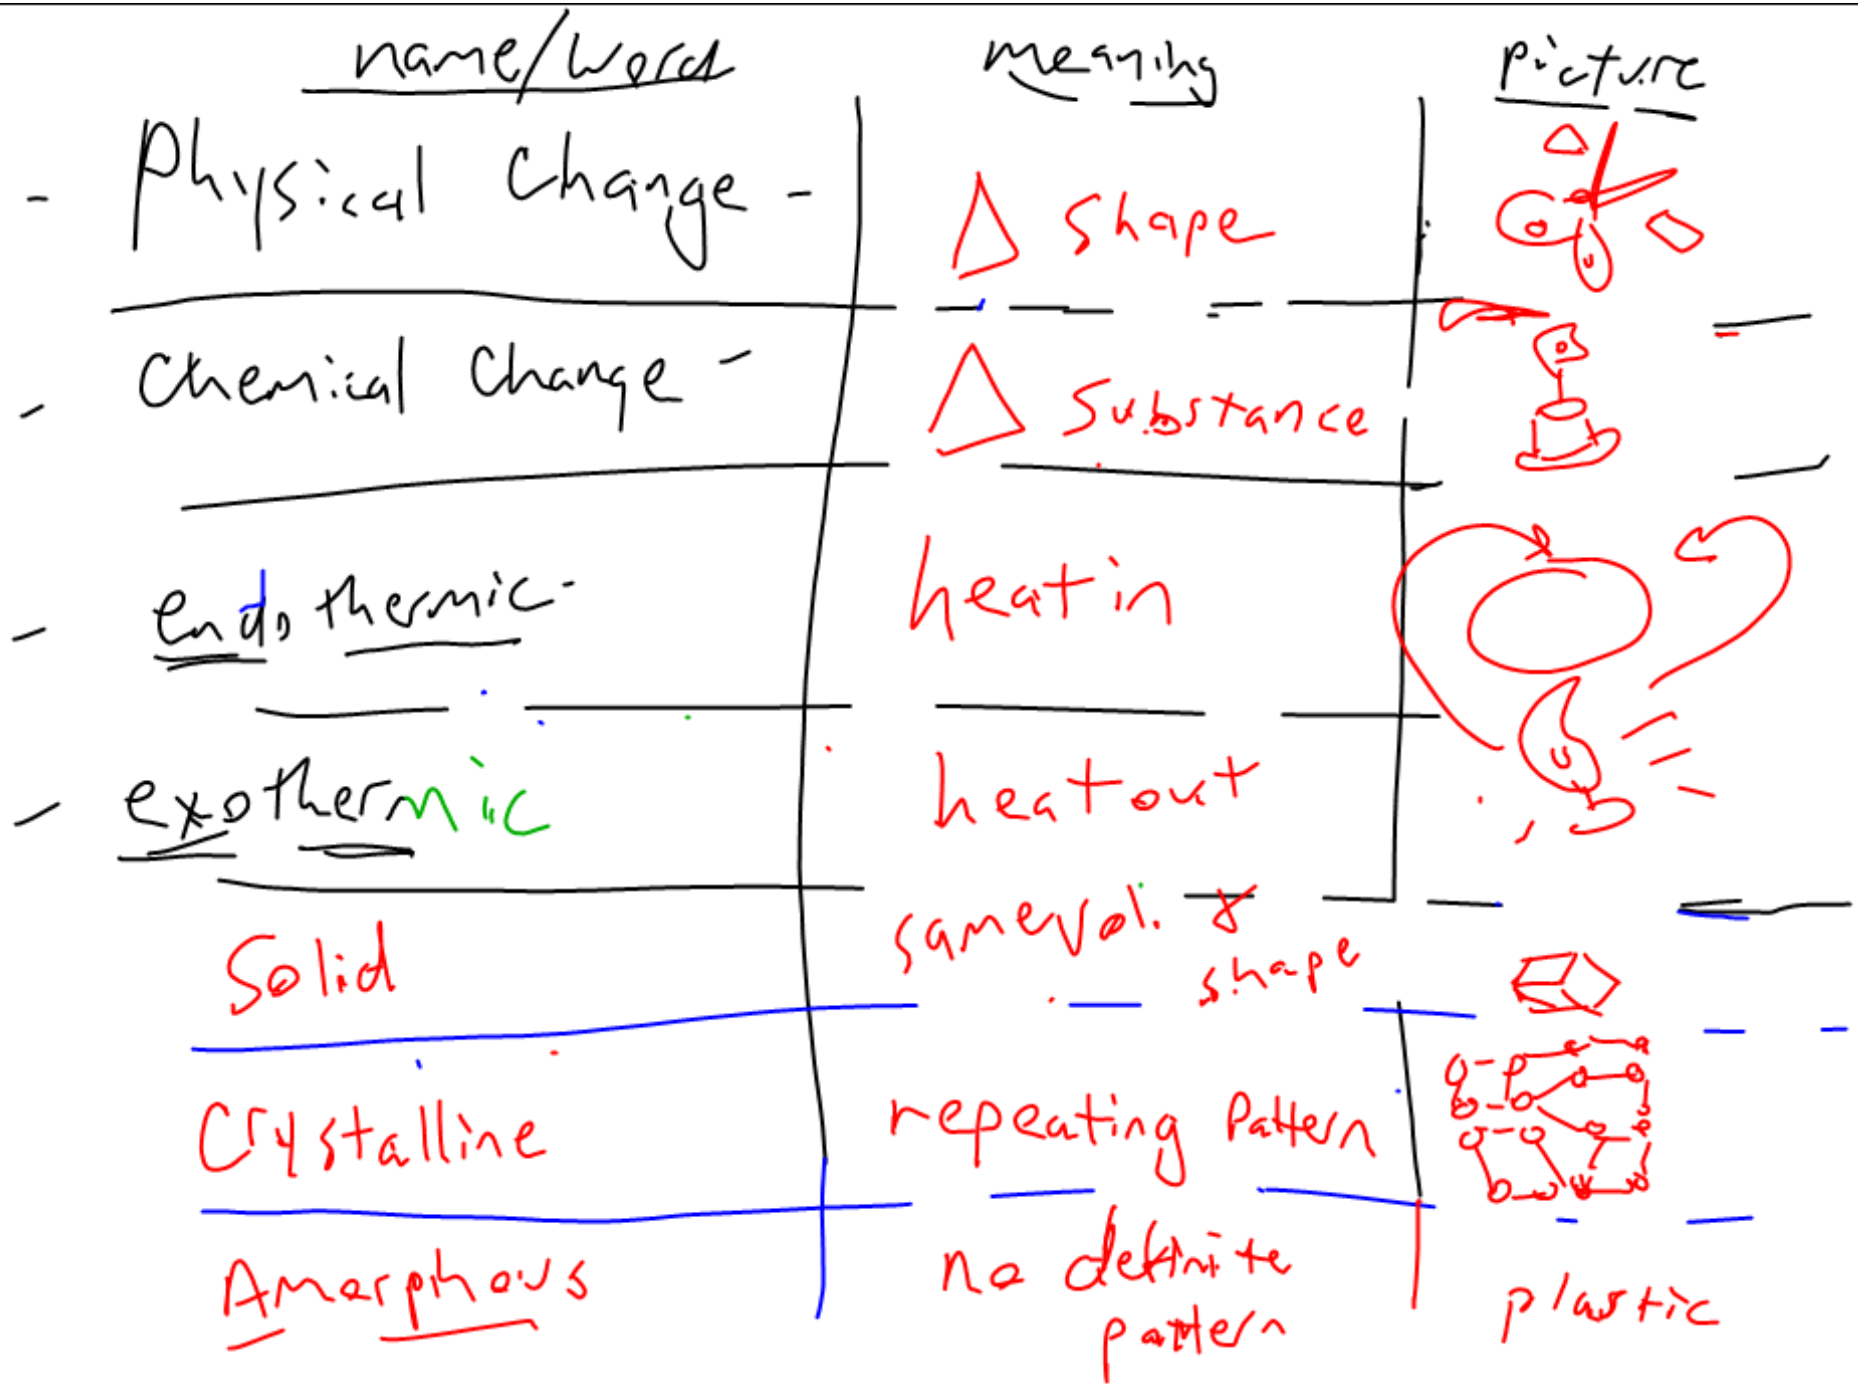 name/word meaning picture
- Physical Change - Δ shape
- Chemical Change - Δ Substance
- endothermic - heat in
- exothermic heat out
Solid same vol. &
shape
Crystalline repeating Pattern
Amorphous no definite
pattern
plastic